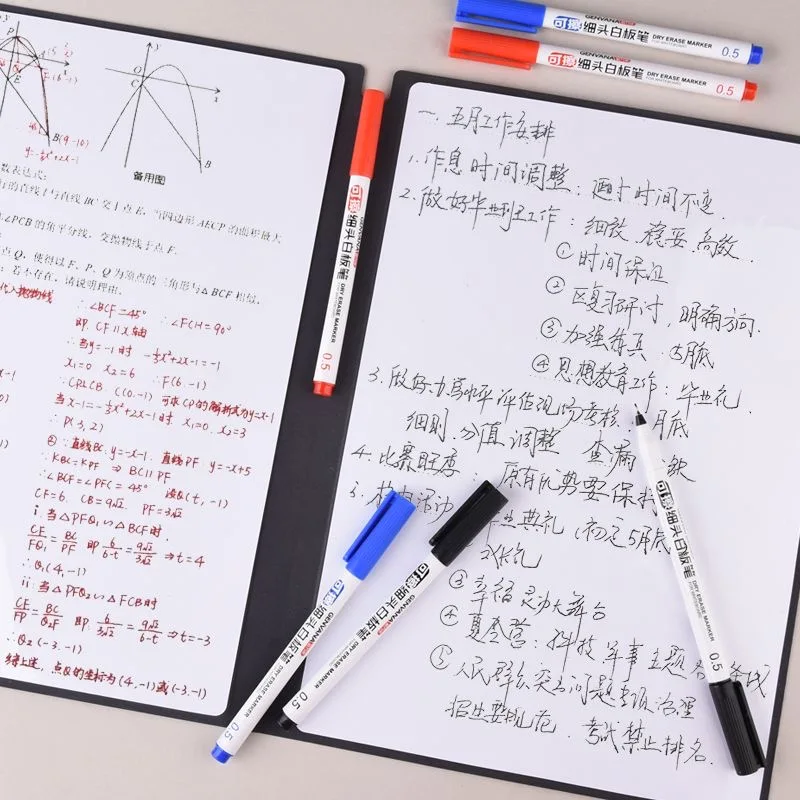 B(9,-10)
y=-⅓x²+2x-1
备用图
数表达式;
行的直线 l 与直线 BC 交于点 E,当四边形 AECP 的面积最大
∠PCB 的角平分线,交抛物线于点 F.
点 Q,使得以 F、P、Q 为顶点的三角形与△BCF 相似,
;若不存在,请说明理由.
代入抛物线
∴∠BCF=45° ∴∠FCH=90°
即 CF∥x轴
∴当y=-1时 -⅓x²+2x-1=-1
x₁=0 x₂=6 ∴F(6,-1)
∵CP⊥CB C(0,-1) 可求CP的解析式为y=x-1
当x-1=-⅓x²+2x-1时 x₁=0 x₂=3
∴P(3,2)
④∵直线BC:y=-x-1 直线PF y=-x+5
∴KBC=KPF ⇒ BC∥PF
∴∠BCF=∠PFC=45° 设Q(t,-1)
CF=6 CB=9√2 PF=3√2
i 当△PFQ₁∽△BCF时
CF/FQ₁=BC/PF 即 6/(6-t)=9√2/3√2 ⇒t=4
∴Q₁(4,-1)
ii 当△PFQ₂∽△FCB时
CF/FP=BC/Q₂F 即 6/3√2=9√2/(6-t) ⇒t=-3
∴Q₂(-3,-1)
综上述,点Q的坐标为(4,-1)或(-3,-1)
一、五月工作安排
1.作息时间调整:延时时间不变.
2.做好毕业班工作:细致 稳妥 高效.
①时间保证
②区复习研讨,明确方向.
③加强仿真 5月底
④思想教育工作:毕业礼.
3.做好办写水平评估现场考核: 月底
细则.分值 调整 查漏 缺
4.比赛旺季: 原有优势要保持
业典礼(初定5月底
③幸福 灵动大舞台
④夏令营:科技 军事 主题
⑤人民群众突出问题专项治理
招生要规范.考试禁止排名.
GENVANA
可擦 细头白板笔
DRY ERASE MARKER
FOR WHITEBOARD
0.5
GENVANA
可擦 细头白板笔
DRY ERASE MARKER
FOR WHITEBOARD
0.5
可擦 细头白板笔
DRY ERASE MARKER
0.5
可擦 细头白板笔
GENVANA
DRY ERASE MARKER
0.5
可擦 细头白板笔
GENVANA
DRY ERASE MARKER
0.5
可擦 细头白板笔
DRY ERASE MARKER
0.5